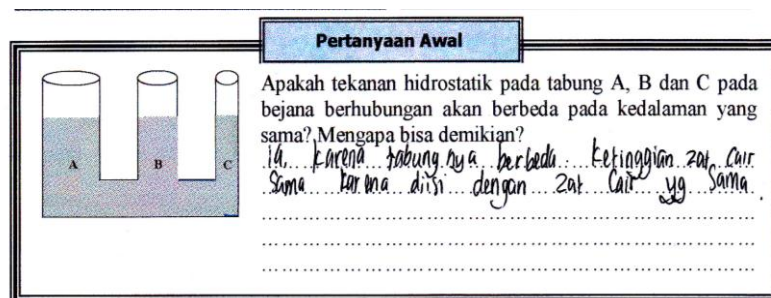 Pertanyaan Awal
Apakah tekanan hidrostatik pada tabung A, B dan C pada
bejana berhubungan akan berbeda pada kedalaman yang
sama? Mengapa bisa demikian?
A B C
ia karena tabung nya berbeda ketinggian zat cair
sama karena diisi dengan zat cair yg sama.